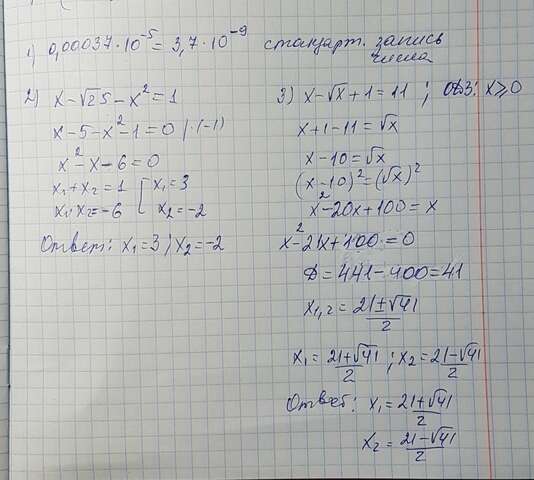 1) 0,00037·10⁻⁵ = 3,7·10⁻⁹ стандарт. запись
числа
2) x - √25 - x² = 1
x - 5 - x² - 1 = 0 | ·(-1)
x² - x - 6 = 0
x₁ + x₂ = 1 [ x₁ = 3
x₁·x₂ = -6 [ x₂ = -2
Ответ: x₁ = 3; x₂ = -2
3) x - √x + 1 = 11 ; ОДЗ: x ⩾ 0
x + 1 - 11 = √x
x - 10 = √x
(x - 10)² = (√x)²
x² - 20x + 100 = x
x² - 21x + 100 = 0
D = 441 - 400 = 41
x₁,₂ = (21 ± √41)/2
x₁ = (21 + √41)/2 ; x₂ = (21 - √41)/2
Ответ: x₁ = (21 + √41)/2
x₂ = (21 - √41)/2